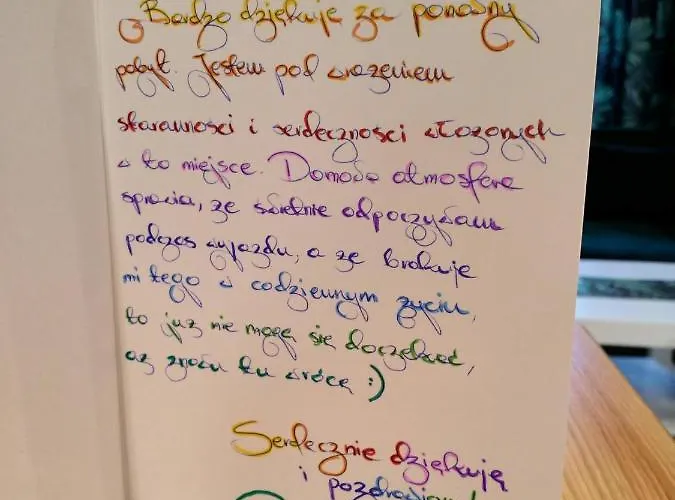 Bardzo dziękuję za ponowny
pobyt. Jestem pod wrażeniem
staranności i serdeczności włożonych
w to miejsce. Domowa atmosfera
sprawia, że świetnie odpoczywam
podczas wyjazdu, a że brakuje
mi tego w codziennym życiu,
to już nie mogę się doczekać,
aż znowu tu wrócę :)
Serdecznie dziękuję
i pozdrawiam!